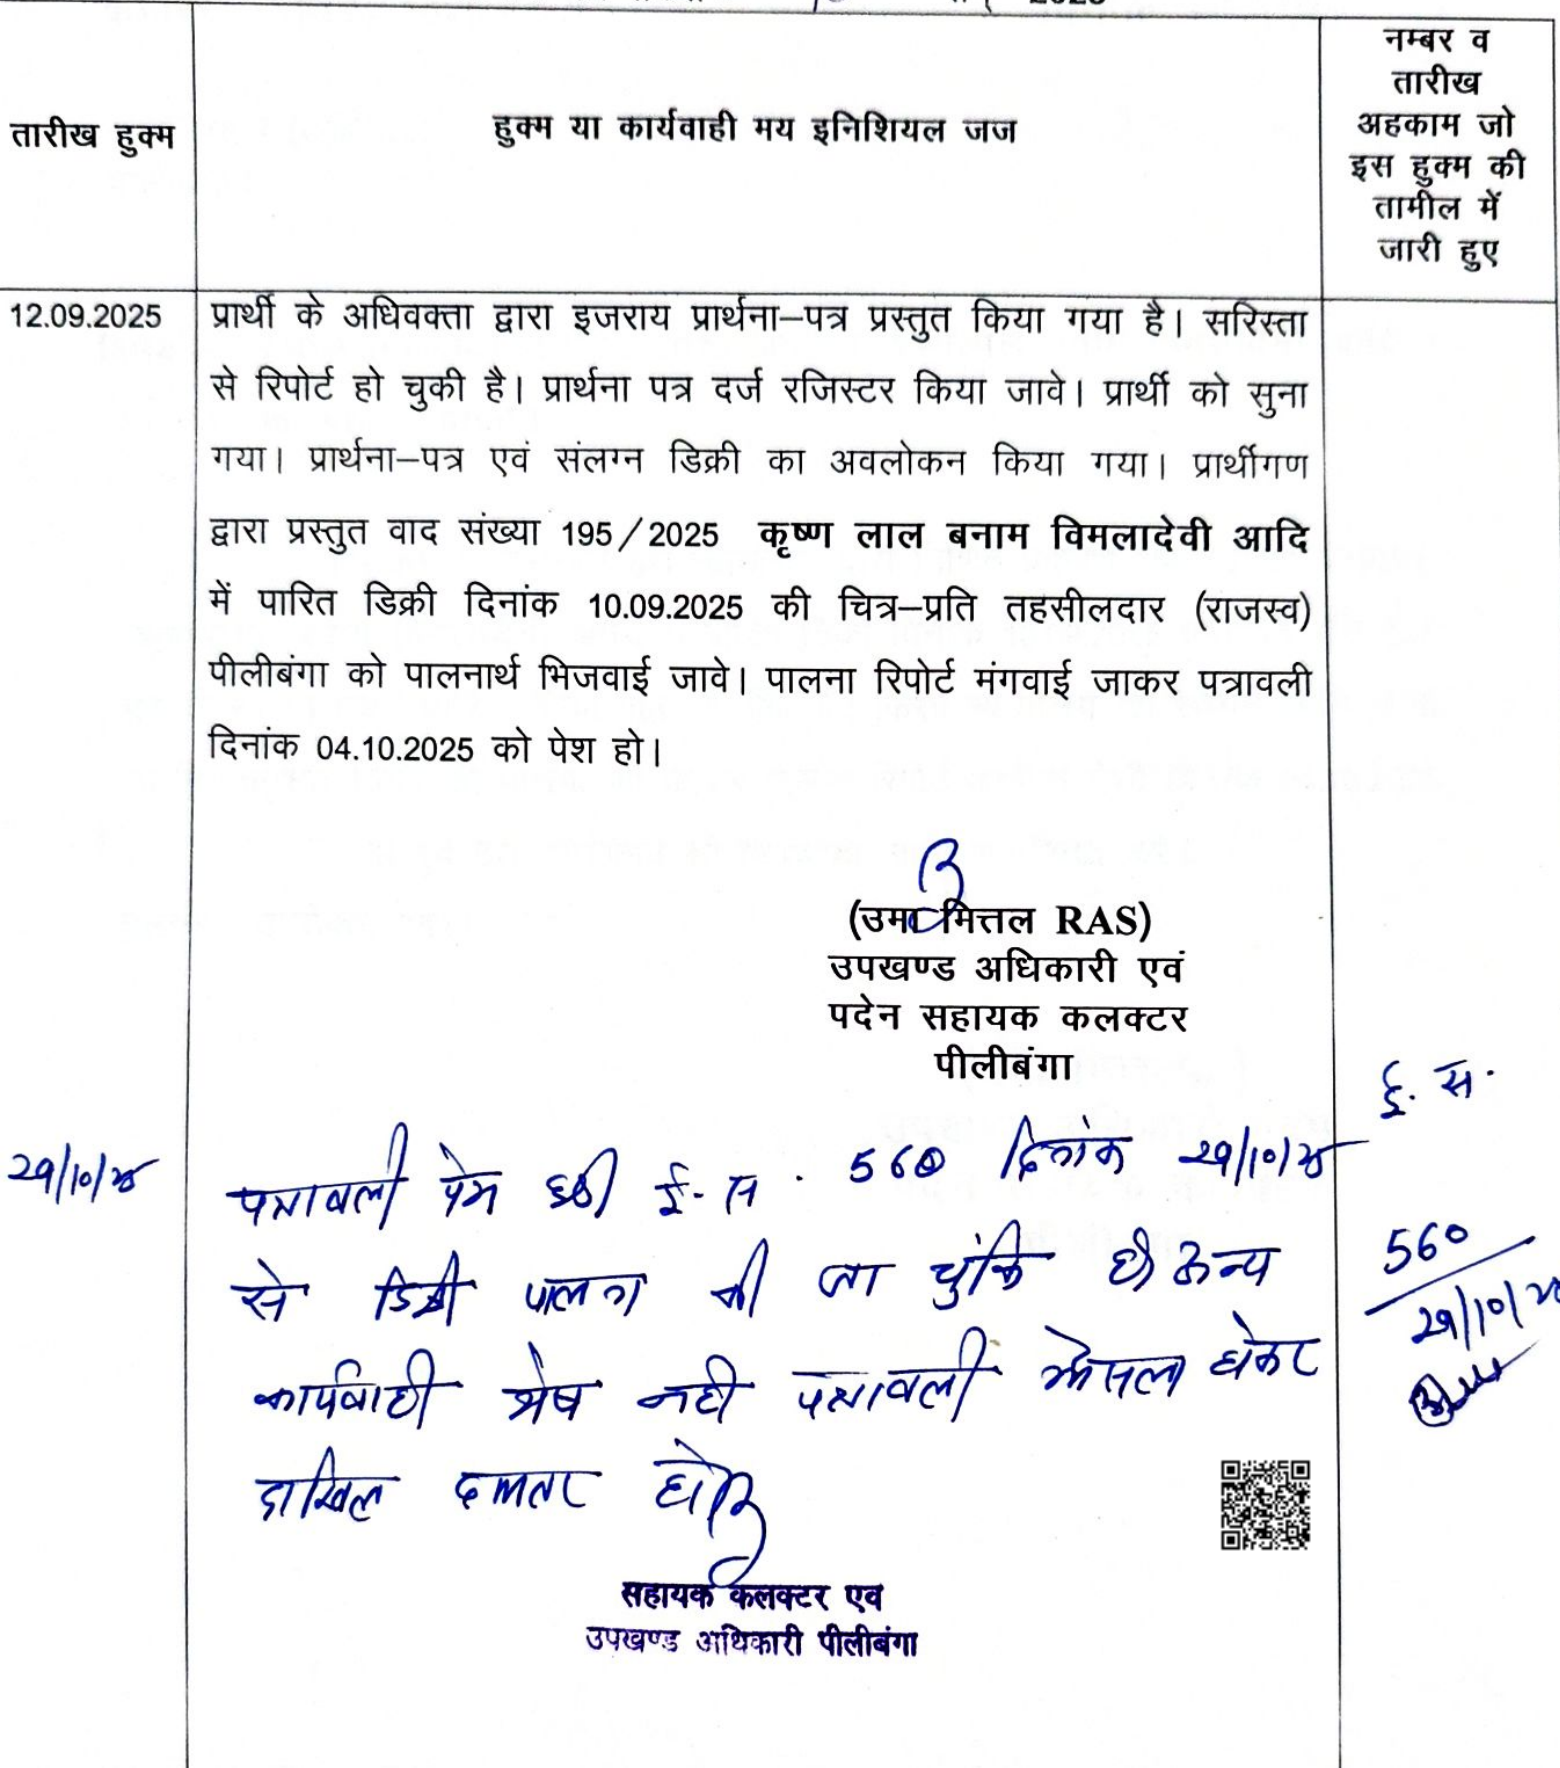 2025
तारीख हुक्म
हुक्म या कार्यवाही मय इनिशियल जज
नम्बर व
तारीख
अहकाम जो
इस हुक्म की
तामील में
जारी हुए
12.09.2025
प्रार्थी के अधिवक्ता द्वारा इजराय प्रार्थना–पत्र प्रस्तुत किया गया है। सरिस्ता
से रिपोर्ट हो चुकी है। प्रार्थना पत्र दर्ज रजिस्टर किया जावे। प्रार्थी को सुना
गया। प्रार्थना–पत्र एवं संलग्न डिक्री का अवलोकन किया गया। प्रार्थीगण
द्वारा प्रस्तुत वाद संख्या 195/2025 कृष्ण लाल बनाम विमलादेवी आदि
में पारित डिक्री दिनांक 10.09.2025 की चित्र–प्रति तहसीलदार (राजस्व)
पीलीबंगा को पालनार्थ भिजवाई जावे। पालना रिपोर्ट मंगवाई जाकर पत्रावली
दिनांक 04.10.2025 को पेश हो।
(उमा मित्तल RAS)
उपखण्ड अधिकारी एवं
पदेन सहायक कलक्टर
पीलीबंगा
29/10/25
पत्रावली पेश हुई ई-स. 560 दिनांक 29/10/25
से डिक्री पालना की जा चुकि है अन्य
कार्यवाही शेष नही पत्रावली फैसला होकर
दाखिल दफ्तर हो
ई. स.
560
29/10/25
सहायक कलक्टर एव
उपखण्ड अधिकारी पीलीबंगा